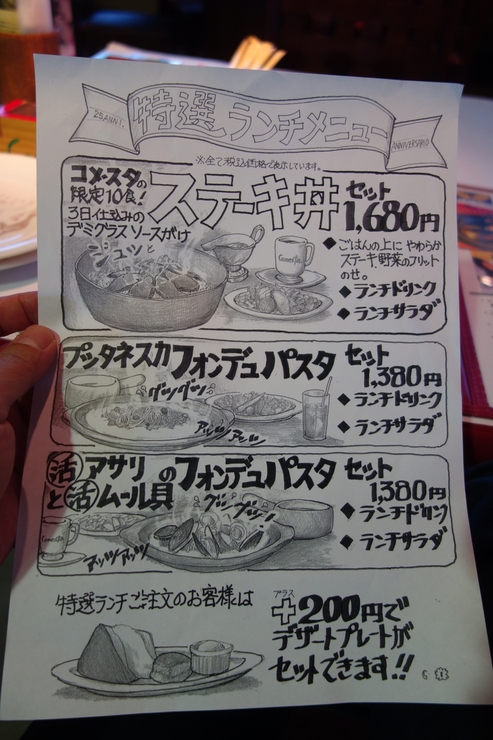 25 ANNI.
特選 ランチメニュー
ANNIVERSARIO
※全て税込価格で表示しています。
コメ・スタの
限定10食!
3日仕込みの
デミグラスソースがけ
ステーキ丼 セット
1,680円
ジュッと
◆ごはんの上に やわらか
ステーキ、野菜のフリット
のせ。
◆ランチドリンク
◆ランチサラダ
プッタネスカ フォンデュパスタ セット
1,380円
グツグツ
アッツアッツ
◆ランチドリンク
◆ランチサラダ
活アサリ
と活ムール貝
のフォンデュパスタ セット
1,380円
グツグツ!
アッツアッツ
◆ランチドリンク
◆ランチサラダ
特選ランチご注文のお客様は
プラス
+200円で
デザートプレートが
セットできます!!